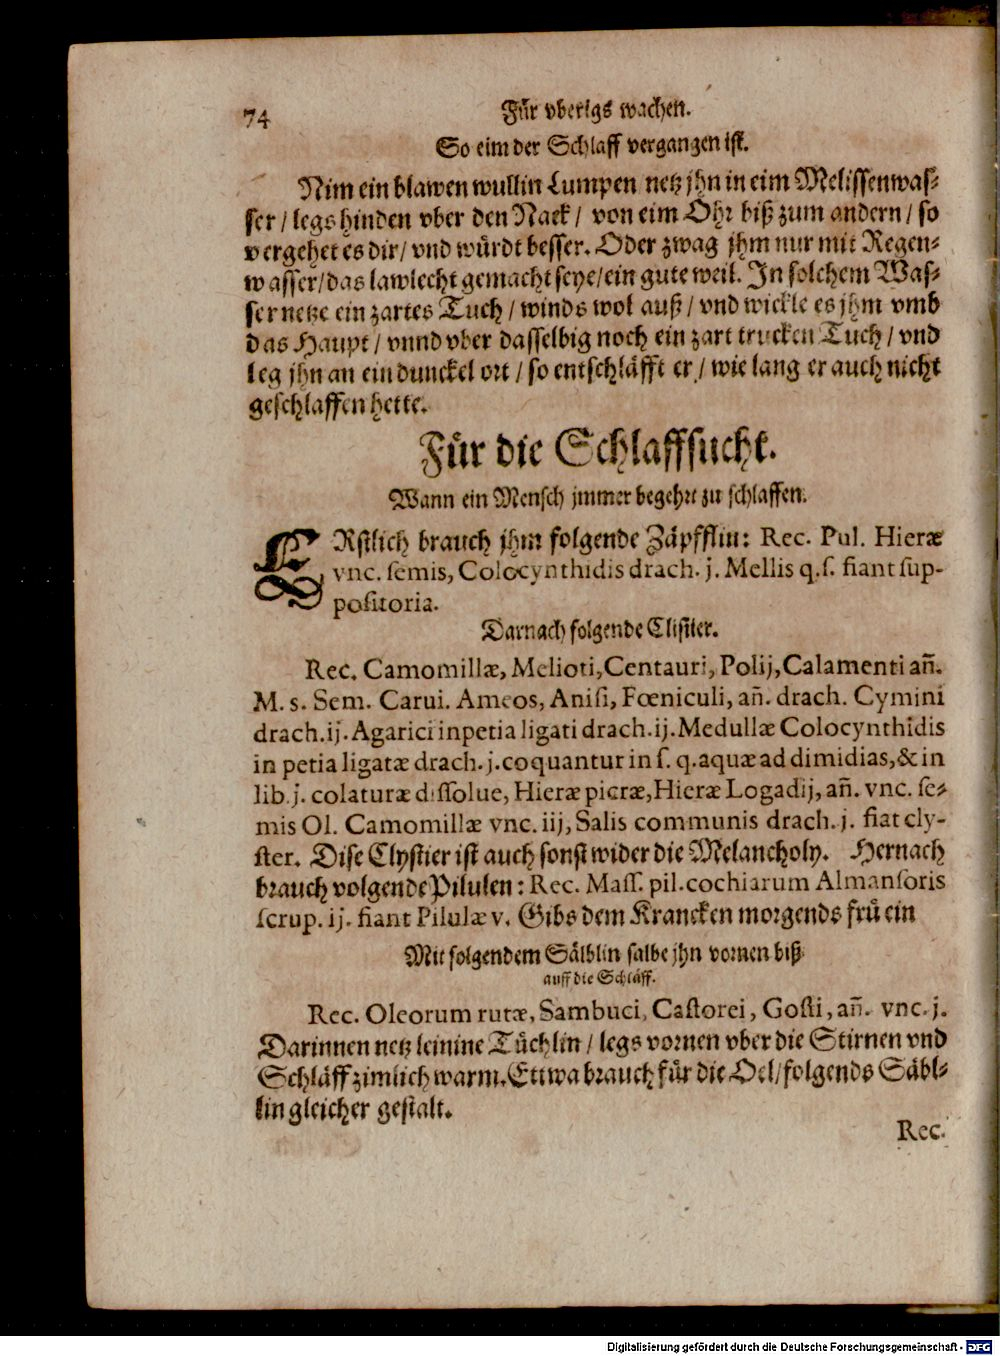 74
Für vberigs wachen.
So eim der Schlaff vergangen ist.
Nim ein blawen wullin Lumpen netz jhn in eim Melissenwas-
ser / legs hinden vber den Nack / von eim Ohr biß zum andern / so
vergehet es dir / vnd würdt besser. Oder zwag jhm nur mit Regen-
wasser / das lawlecht gemacht seye / ein gute weil. In solchem Was-
ser netze ein zartes Tuch / winds wol auß / vnd wickle es jhm vmb
das Haupt / vnnd vber dasselbig noch ein zart trucken Tuch / vnd
leg jhn an ein dunckel ort / so entschläfft er / wie lang er auch nicht
geschlaffen hette.
Für die Schlaffsucht.
Wann ein Mensch jmmer begehrt zu schlaffen.
ERstlich brauch jhm folgende Zäpfflin: Rec. Pul. Hieræ
vnc. semis, Colocynthidis drach. j. Mellis q.s. fiant sup-
positoria.
Darnach folgende Clistier.
Rec. Camomillæ, Melioti, Centauri, Polij, Calamenti añ.
M. s. Sem. Carui. Ameos, Anisi, Fœniculi, añ. drach. Cymini
drach. ij. Agarici in petia ligati drach. ij. Medullæ Colocynthidis
in petia ligatæ drach. j. coquantur in s. q. aquæ ad dimidias, & in
lib. j. colaturæ dissolue, Hieræ picræ, Hieræ Logadij, añ. vnc. se-
mis Ol. Camomillæ vnc. iij, Salis communis drach. j. fiat cly-
ster. Dise Clystier ist auch sonst wider die Melancholy. Hernach
brauch volgende Pilulen: Rec. Mass. pil. cochiarum Almansoris
scrup. ij. fiant Pilulæ v. Gibs dem Krancken morgends frü ein
Mit folgendem Sälblin salbe jhn vornen biß
auff die Schläff.
Rec. Oleorum rutæ, Sambuci, Castorei, Gosti, añ. vnc. j.
Darinnen netz leinine Tüchlin / legs vornen vber die Stirnen vnd
Schläff zimlich warm. Ettwa brauch für die Oel / folgends Säbl-
lin gleicher gestalt.
Rec.
Digitalisierung gefördert durch die Deutsche Forschungsgemeinschaft - DFG